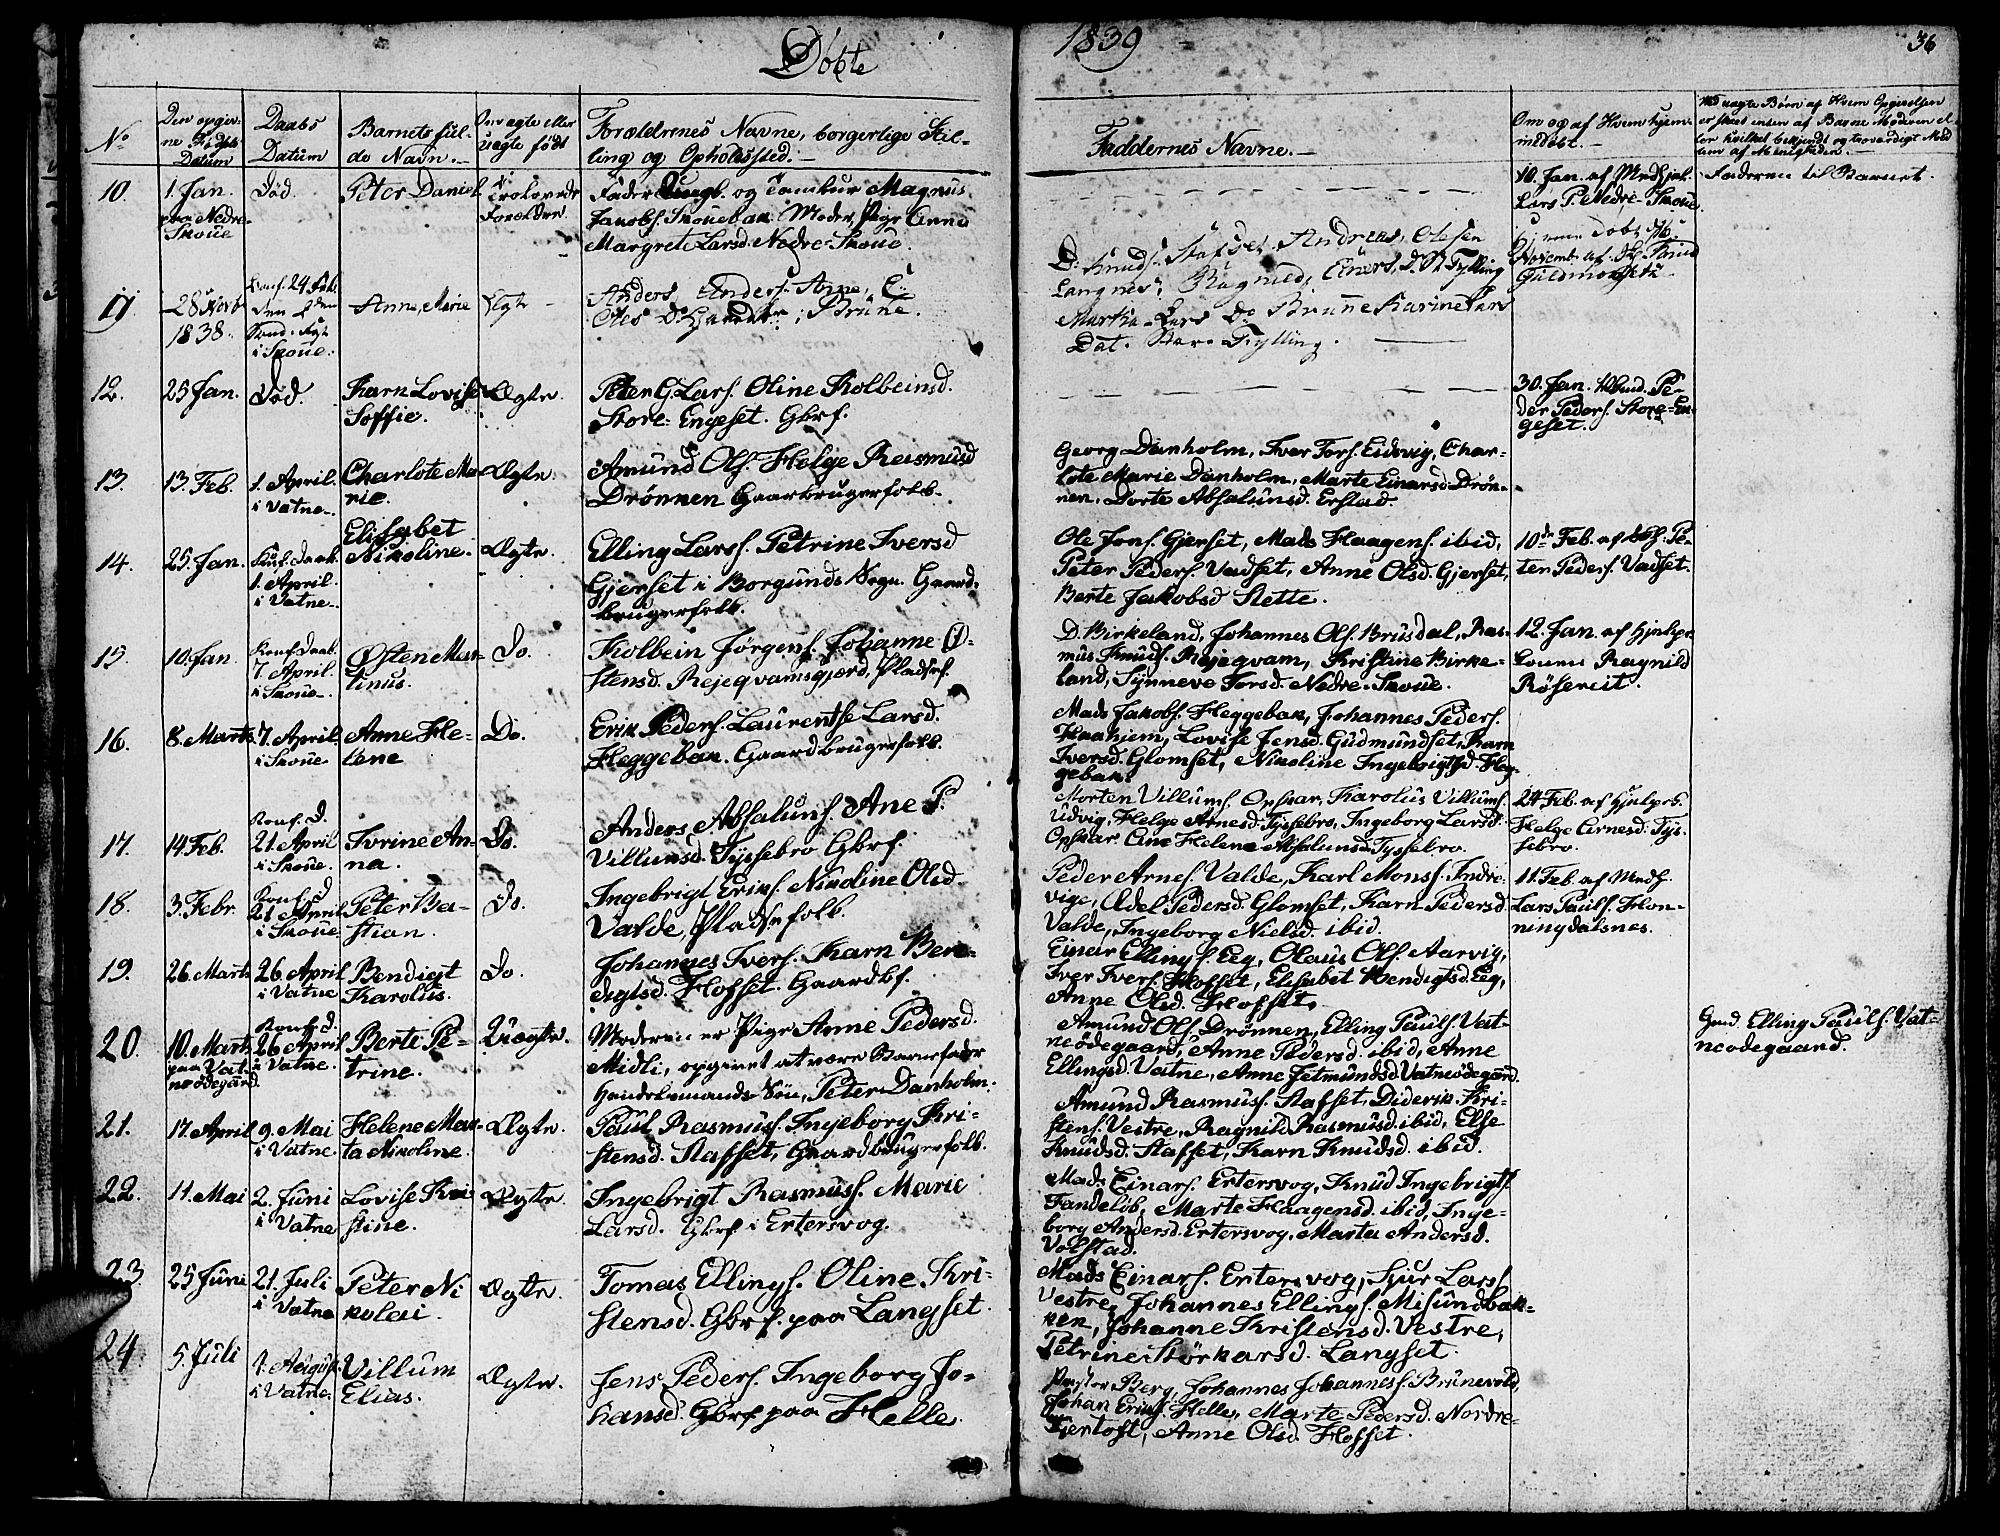 Döbte
1839
36
No
Den opgiv-
ne Födsels
Datum
Daabs
Datum
Barnets ful-
de Navn.
Om ægte eller
uægte født
Forældrenes Navne, borgerlige Stil-
ling og Opholdssted.
Faddernes Navne.
Om og af Hvem hjem-
medöbt.
10.
1. Jan.
paa Nedre-
Skoue
Död.
Peter Daniel
Trolovede
Forældre
Fader Ungk. og Tambur Magnus
Jakobs. Skouebak. Moder, Pige Anne
Margrete Larsd. Nedre-Skoue.
10. Jan. af Medhjel.
Lars P. Nedre-Skoue.
Faderen til Barnet.
11
28 Novb
1838.
i Skoue.
Anne Marie
Ægte
Anders Anders. Anne
Brune.
Andreas Olsen
Langnes, Ragnild Einers. D. St. Fylling
Martha Lars Do Brune Karine Lars
Dat. Store Fylling.
12.
25 Jan.
Död.
Karn Lovise
Soffie.
Ægte.
Peter G. Lars. Oline Kolbeinsd.
Store-Engeset. Gbrf.
30. Jan. Pe-
der Peders. Store-En-
geset.
13.
13. Feb.
1. April.
i Vatne.
Charlote Ma-
rie.
Ægte.
Amund Ols. Helge Rasmusd
Drönnen Gaardbrugerfolk.
Georg Danholm, Iver Tors. Eidsvig, Char-
lote Marie Danholm, Marte Einarsd. Drön-
nen, Dorte Absalunsd. Erstad.
14.
25 Jan.
Konf. Daab
1. April.
i Vatne.
Elisabet
Nikoline.
Ægte.
Elling Lars. Petrine Iversd
Gjerset i Borgunds Sogn. Gaard-
brugerfolk.
Ole Jons. Gjerset, Mads Haagens. ibid,
Peter Peders. Vadset, Anne Olsd. Gjerset,
Berte Jakobsd Slette.
10de Feb. af Pe-
ter Peders. Vadset.
15.
10. Jan
Konf. Daab.
7. April
i Skoue.
Østen Mar-
tinus.
Do.
Kolbein Jørgens. Johanne Ø-
stensd. Rejeqvamsgjerd, Pladsf.
D. Birkeland, Johannes Ols. Brusdal, Ras-
mus Knuds. Rejeqvam, Kristine Birke-
land, Synneve Torsd. Nedre-Skoue.
12. Jan. af Hjelpe-
konen Ragnild
Röseveit.
16.
8. Marts
7. April
i Skoue
Anne He-
lene
Do.
Erik Peders. Laurentse Larsd.
Heggebak. Gaardbrugerfolk.
Mads Jakobs. Heggebak, Johannes Peders.
Haahjem, Lovise Jensd. Gudmundset, Karn
Iversd. Glomset, Nikoline Ingebrigtsd. Heg-
gebak.
17.
14 Feb.
Konf. D.
21. April
i Skoue.
Iverine An-
na.
Do.
Anders Absaluns. Ane P.
Villumsd. Tyssebro Gbrf.
Morten Villums. Opskar, Karolus Villums.
Udvig, Helge Arnesd. Tyssebro, Ingeborg Larsd.
Opskar. Ane Helene Absalunsd. Tyssebro.
24 Feb. af Hjelpek.
Helge Arnesd. Tys-
sebro.
18.
3. Febr.
Konf. D
21 April
i Skoue.
Peter Ba-
stian.
Do.
Ingebrigt Eriks. Nikoline Olsd.
Valde, Pladsefolk.
Peder Arnes. Valde, Karl Mons. Indre-
vige, Adel Pedersd. Glomset, Karn Pedersd
Valde, Ingeborg Nielsd. ibid.
11. Feb. af Medh.
Lars Pauls. Hon-
ningdalsnes.
19.
26. Marts
26. April
i Vatne
Bendigt
Karolus.
Do.
Johannes Ivers. Karn Ben-
digtsd. Flosset. Gaardbf.
Einar Ellings. Eeg, Olaus Ols. Aarvig,
Iver Ivers. Flosset, Elisabet Bendigtsd. Eeg,
Anne Olsd. Flosset.
20.
10. Marts
paa Vat-
neödegard.
Konf. D.
26 April
i Vatne.
Berte Pe-
trine.
Uægte.
Moderen er Pige Anne Pedersd.
Midli, opgivet at være Barnefader
Handelsmands Sön, Peter Danholm.
Amund Ols. Drönnen, Elling Pauls. Vat-
neödegaard, Anne Pedersd. ibid, Anne
Ellingsd. Vatne, Anne Jetmundsd. Vatneödegaard.
Gmd. Elling Pauls. Vat-
neodegaard.
21.
17. April
9. Mai
i Vatne.
Helene Mar-
ta Nikoline.
Ægte.
Paul Rasmuss. Ingeborg Kri-
stensd. Stafset, Gaardbrugerfolk.
Amund Rasmuss. Stafset, Diderik Kri-
stens. Vestre, Ragnild Rasmusd. ibid, Else
Knudsd. Stafset, Karn Knudsd. ibid.
22.
11. Mai
2. Juni
i Vatne
Lovise Kri-
stine.
Ægte.
Ingebrigt Rasmuss. Marie
Larsd. Gbrf i Ertersvog.
Mads Einars. Ertersvog, Knud Ingebrigts.
Tandelöb, Marte Haagensd. ibid, Inge-
borg Andersd. Ertersvog, Marta Andersd.
Volstad.
23.
25 June
21. Juli
i Vatne
Peter Ni
kolai.
Ægte.
Tomas Ellings. Oline Kri-
stensd. Gbrf. paa Langset.
Mads Einars. Ertersvog, Sjur Lars.
Vestre, Johannes Ellings. Misundbak-
ken, Johanne Kristensd. Vestre,
Petrine Störkarsd. Langset.
24.
5. Juli
i Vatne.
Villum
Elias.
Ægte.
Jens Peders. Ingeborg Jo-
hansd. Gbrf paa Helle.
Berg, Johannes Johanness. Brunevold,
Johan Eriks. Helle, Marte Pedersd. Nordre-
Gjertoft, Anne Olsd. Flosset.